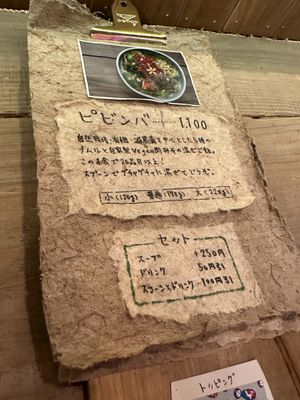 ピビンバ……… 1,100
自然栽培・有機・減農薬を中心とした5種の
ナムルと自家製Vegan肉みその混ぜご飯。
この1食で20品目以上!
スプーンでグチャグチャに混ぜてどうぞ。
小(120g) 普通(170g) 大(220g)
セット
スープ +250円
ドリンク 50円引
スープとドリンク 100円引
トッピング